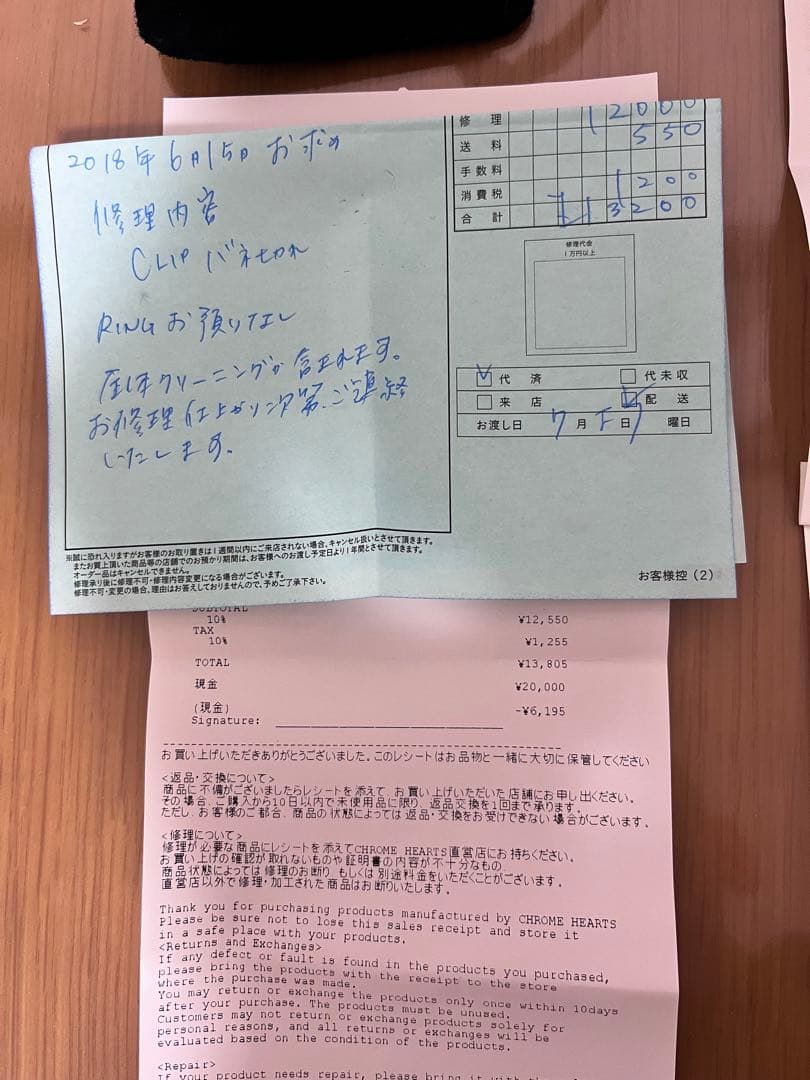 2018年6月15日 お求め
修理内容
CLIP バネ切れ
RINGお預りなし
全体クリーニングが含まれます。
お修理仕上がり次第、ご連絡
いたします。
修理 12000
送料 550
手数料
消費税 1200
合計 13200
修理代金
1万円以上
代済 代未収
来店 配送
お渡し日 7月下日 曜日
※誠に恐れ入りますがお客様のお取り置きは1週間以内にご来店されない場合、キャンセル扱いとさせて頂きます。
またお買上頂いた商品等の店舗でのお預かり期間は、お客様へのお渡し予定日より1年間とさせて頂きます。
オーダー品はキャンセルできません。
修理承り後に修理不可・修理内容変更になる場合がございます。
修理不可・変更の場合、理由はお答えしておりませんので、予めご了承下さい。
お客様控(2)
SUBTOTAL
10% ¥12,550
TAX
10% ¥1,255
TOTAL ¥13,805
現金 ¥20,000
(現金) -¥6,195
Signature:
お買い上げいただきありがとうございました。このレシートはお品物と一緒に大切に保管してください
<返品・交換について>
商品に不備がございましたらレシートを添えて、お買い上げいただいた店舗にお申し出ください。
その場合、ご購入から10日以内で未使用品に限り、返品交換を1回まで承ります。
ただし、お客様のご都合、商品の状態によっては返品・交換をお受けできない場合がございます。
<修理について>
修理が必要な商品にレシートを添えてCHROME HEARTS直営店にお持ちください。
お買い上げの確認が取れないものや証明書の内容が不十分なもの
商品状態によっては修理のお断り、もしくは別途料金をいただくことがございます。
直営店以外で修理・加工された商品はお断りいたします。
Thank you for purchasing products manufactured by CHROME HEARTS
Please be sure not to lose this sales receipt and store it
in a safe place with your products.
<Returns and Exchanges>
If any defect or fault is found in the products you purchased,
please bring the products with the receipt to the store
where the purchase was made.
You may return or exchange the products only once within 10days
after your purchase. The products must be unused.
Customers may not return or exchange products solely for
personal reasons, and all returns or exchanges will be
evaluated based on the condition of the products.
<Repair>
If your product needs repair, please bring it with the